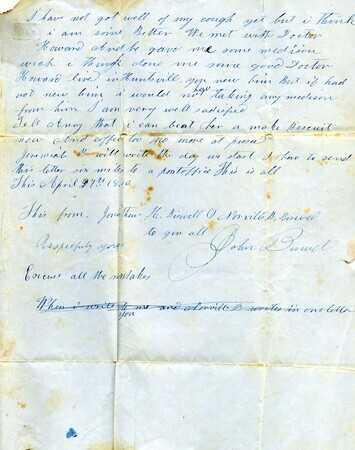 I have not got well of my cough yet but i think
i am some Better We met with Doctor
Howard And he gave me some medison
wich i think done me some good Doctor
Howard lived in Huntsvill you now him But if had
not new him i would not be taking any medison
from him I am very well sadisfied
Tell Anny that i can beat her a make Biscuit
now And coffee too no more at presen
Jeremiah I will write the day we start I hav to send
this letter six miles to a postoffice This is all
This April 27th
This from Jonathan H. Buswell O Norville B. Buswell
to you all
Respecfuly yours John Buswell
Excuse all the mistakes
When i write to me and Norville B writes in one letter
you